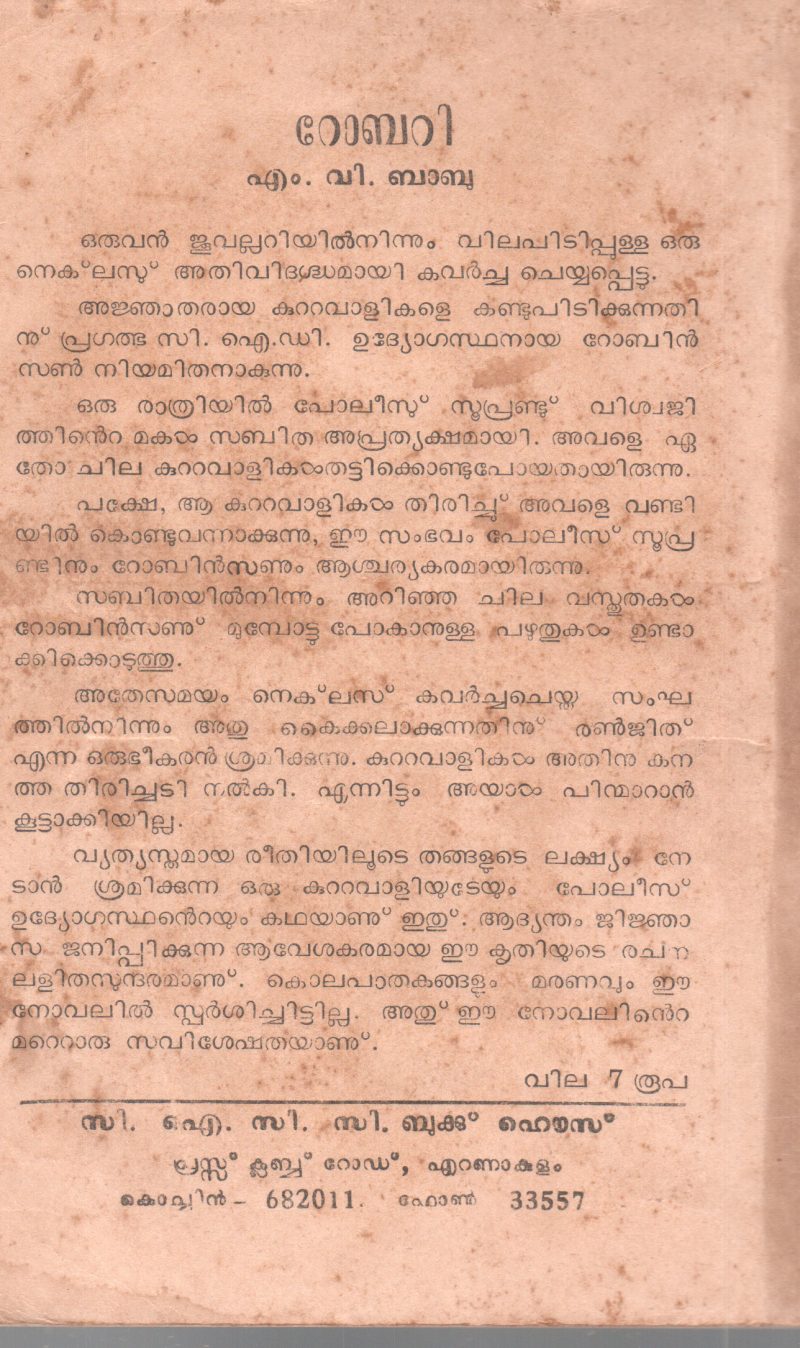 റോബറി
എം. വി. ബാബു
ഒരുവൻ ജൂവല്ലറിയിൽനിന്നും വിലപിടിപ്പുള്ള ഒരു
നെക്ലസു് അതിവിദഗ്ദ്ധമായി കവർച്ച ചെയ്യപ്പെട്ടു.
അജ്ഞാതരായ കുററവാളികളെ കണ്ടുപിടിക്കുന്നതി
നു് പ്രഗത്ഭ സി. ഐ.ഡി. ഉദ്യോഗസ്ഥനായ റോബിൻ
സൺ നിയമിതനാകുന്നു.
ഒരു രാത്രിയിൽ പോലീസു് സൂപ്രണ്ടു് വിശ്വജി
ത്തിൻെറ മകൾ സബിത അപ്രത്യക്ഷമായി. അവളെ ഏ
തോ ചില കുററവാളികൾതട്ടിക്കൊണ്ടുപോയതായിരുന്നു.
പക്ഷേ, ആ കുററവാളികൾ തിരിച്ചു് അവളെ വണ്ടി
യിൽ കൊണ്ടുവന്നാക്കുന്നു, ഈ സംഭവം പോലീസ് സൂപ്ര
ണ്ടിനും റോബിൻസണും ആശ്ചര്യകരമായിരുന്നു.
സബിതയിൽനിന്നും അറിഞ്ഞ ചില വസ്തുതകൾ
റോബിൻസണു് മുമ്പോട്ടു പോകാനുള്ള പഴുതുകൾ ഉണ്ടാ
ക്കിക്കൊടുത്തു.
അതേസമയം നെക്ലസ് കവർച്ചചെയ്ത സംഘ
ത്തിൽനിന്നും അതു കൈക്കലാക്കുന്നതിനു് രൺജിത്
എന്ന ഒരുഭീകരൻ ശ്രമിക്കുന്നു. കുററവാളികൾ അതിനു കന
ത്ത തിരിച്ചടി നൽകി. എന്നിട്ടും അയാൾ പിന്മാറാൻ
കൂട്ടാക്കിയില്ല.
വ്യത്യസ്തമായ രീതിയിലൂടെ തങ്ങളുടെ ലക്ഷ്യം നേ
ടാൻ ശ്രമിക്കുന്ന ഒരു കുററവാളിയുടേയും പോലീസ്
ഉദ്യോഗസ്ഥൻെറയും കഥയാണു് ഇതു്. ആദ്യന്തം ജിജ്ഞാ
സ ജനിപ്പിക്കുന്ന ആവേശകരമായ ഈ കൃതിയുടെ രചന
ലളിതസുന്ദരമാണു്. കൊലപാതകങ്ങളും മരണവും ഈ
നോവലിൽ സ്പർശിച്ചിട്ടില്ല. അതു് ഈ നോവലിൻെറ
മറെറാരു സവിശേഷതയാണു്.
വില 7 രൂപ
സി. ഐ. സി. സി. ബുക്കു് ഹൌസ്
പ്രസ്സ് ക്ലബ്ബ് റോഡ്, എറണാകുളം
കൊച്ചിൻ - 682011. ഫോൺ 33557